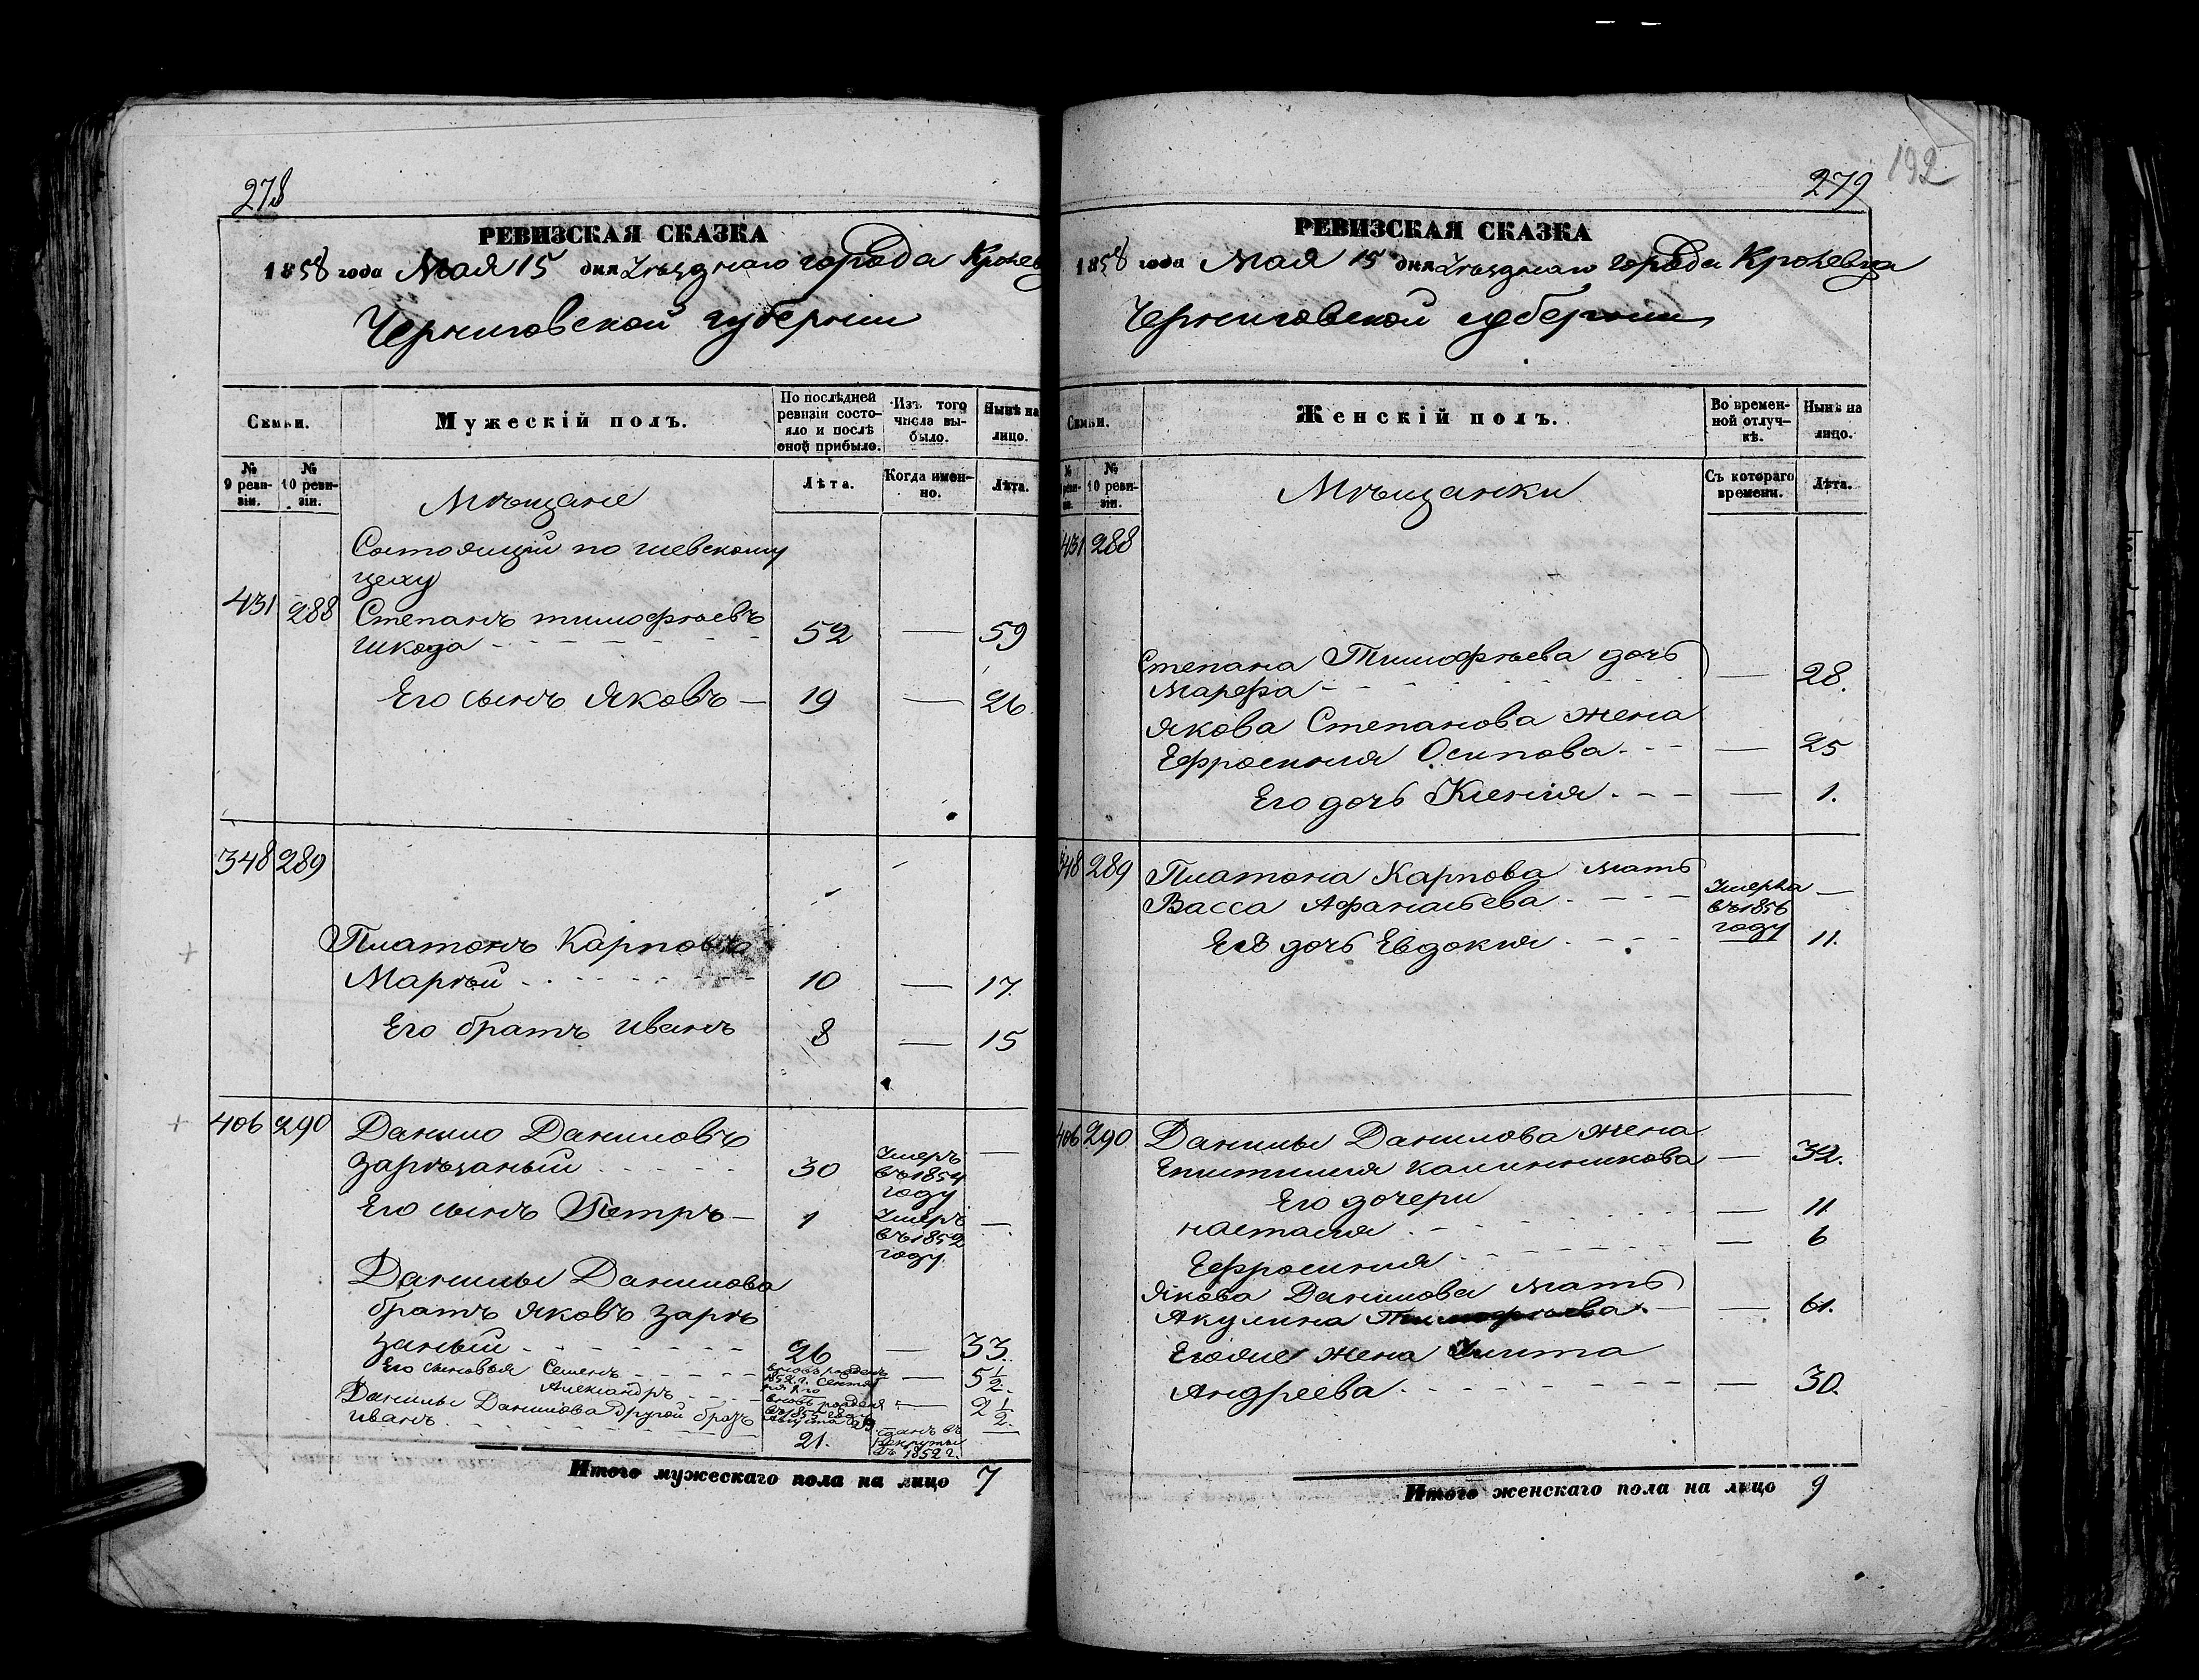 278
РЕВИЗСКАЯ СКАЗКА
1858 года Мая 15 дня Уѣзднаго города Кролев
Черниговской губернии
Семьи.
Мужескій полъ.
По послѣдней ревизіи состояло и послѣ оной прибыло.
Изъ того числа выбыло.
Нынѣ на лицо.
№ 9 ревизіи.
№ 10 ревизіи.
Лѣта.
Когда именно.
Лѣта.
Мѣщане
Состоящій по шевскому
цеху
431 288 Степанъ тимофѣевъ
Шкода 52 — 59
Его сынъ Яковъ — 19 — 26
348 289
Платонъ Карповъ
Маргѣй 10 — 17.
Его братъ иванъ 8 — 15
406 290 Данило Даниловъ
Зарѣзаный 30 Умеръ въ 1854 году —
Его сынъ Петръ — 1 Умеръ въ 1852 году —
Данилы Данилова
братъ яковъ зарѣ
заный 26 — 33.
Его сыновья Семенъ вновь рожденъ 1852 г. Сентя — 5 1/2.
Александръ вновь рожденъ въ 1855 Августа 29 — 2 1/2.
Данилы Данилова другой братъ
иванъ 21. Сданъ въ Рекруты въ 1852 г. —
Итого мужескаго пола на лицо 7
192
279
РЕВИЗСКАЯ СКАЗКА
1858 года Мая 15 дня Уѣзднаго города Кролевца
Черниговской губернии
Семьи.
Женскій полъ.
Во временной отлучкѣ.
Нынѣ на лицо.
№ 10 ревизіи.
Съ котораго времени.
Лѣта.
Мѣщанки
431 288
Степана Тимофѣева дочь
Марфа — 28.
Якова Степанова жена
Ефросиния Осипова — 25
Его дочь Ксения — 1.
348 289 Платона Карпова мать
Васса Афанасьева Умерла въ 1856 году —
Ея дочь Евдокия — 11.
406 290 Данилы Данилова жена
Епистимия калинникова — 32.
Его дочери
настасия — 11
Ефросиния — 6
Якова Данилова мать
Акулина Тимофѣева — 61.
Егоже жена Улита
Андреева — 30.
Итого женскаго пола на лицо 9